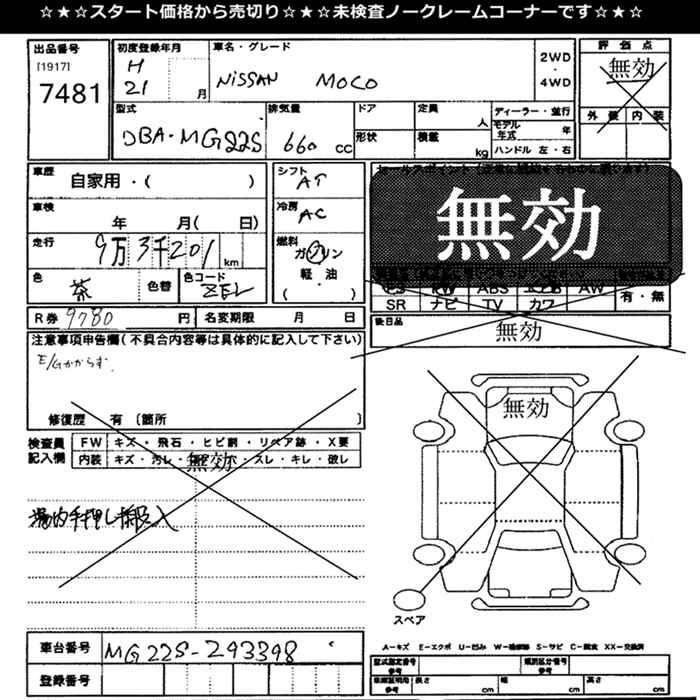 ☆★☆スタート価格から売切り☆★☆未検査ノークレームコーナーです☆★☆
出品番号
[1917]
7481
初度登録年月
H
21
月
車名・グレード
NISSAN MOCO
2WD
・
4WD
評価点
無効
外装 内装
型式
DBA-MG22S
排気量
660 cc
ドア
形状
定員
人
積載
kg
ディーラー・並行
モデル
年式
年
ハンドル 左・右
車歴
自家用・( )
車検
年 月( 日)
走行
9万3千201 km
色
茶
色替
色コード
ZEL
シフト
AT
冷房
AC
燃料
ガソリン
軽・油
( )
無効
PS PW ABS エアB AW
SR ナビ TV カワ
有・無
R券 9780 円
名変期限 月 日
後日品
無効
注意事項申告欄(不具合内容等は具体的に記入して下さい)
E/Gかからず.
修復歴 有〔箇所 〕
検査員
記入欄
FW キズ・飛石・ヒビ割・リペア跡・X要
内装 キズ・汚レ・ スレ・キレ・破レ
無効
場内手押し搬入
無効
スペア
車台番号
MG22S-293398
登録番号
A-キズ E-エクボ U-凹み W-補修跡 S-サビ C-腐食 XX-交換済
型式指定番号
参考
類別区分番号
参考
車庫証明用
参考
長さ cm
幅 cm
高さ cm